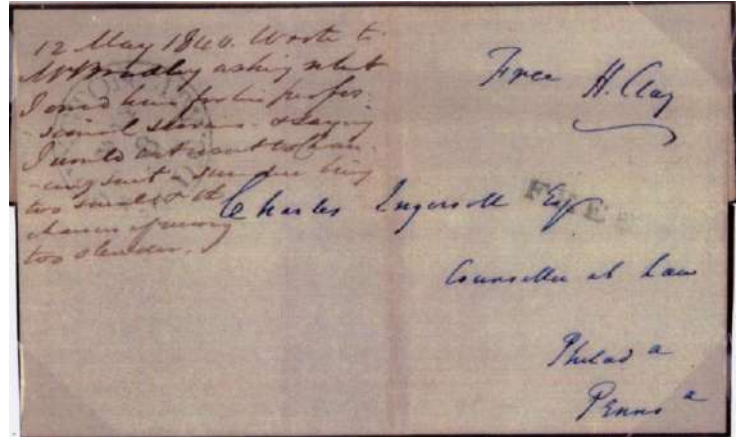 12 May 1840. Wrote to
Mr Bradley asking what
I owed him for his profes
-sional services & saying
I would not want to Chan-
-cery suit - sum
too small & the
chances of
too slender.
Free H. Clay
FREE
Charles Ingersoll Esq
Counsellor at Law
Philad a
Penns a